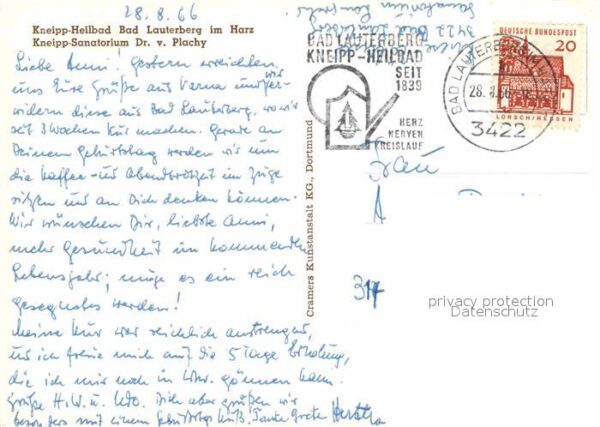 28.8.66
Kneipp-Heilbad Bad Lauterberg im Harz
Kneipp-Sanatorium Dr. v. Plachy
Liebe Anni! Gestern erreichten
uns Eure Grüße aus Varna und wir
widern diese aus Bad Lauterberg, wo wir
seit 3 Wochen kur machen. Gerade an
Deinem Geburtstag werden wir um
die Kaffee- und Abendbrotzeit im Zuge
sitzen und an Dich denken können.
Wir wünschen Dir, liebste Anni,
mehr Gesundheit im kommenden
Lebensjahr; möge es ein reich
gesegnetes werden!
Meine Kur war reichlich anstrengend,
und ich freue mich auf die 5 Tage Erholung,
die ich mir noch in gönnen kann.
Grüße H.W. u. Udo. Dich aber grüßen wir
besonders mit einem Geburtstagskuß. Tante Grete Hertha
Cramers Kunstanstalt KG., Dortmund
3422 Bad Lauterberg
BAD LAUTERBERG
KNEIPP-HEILBAD
SEIT
1839
HERZ
NERVEN
KREISLAUF
BAD LAUTERBERG IM HARZ
28.8.66
3422
DEUTSCHE BUNDESPOST
20
LORSCH/HESSEN
Frau
A
314
privacy protection
Datenschutz